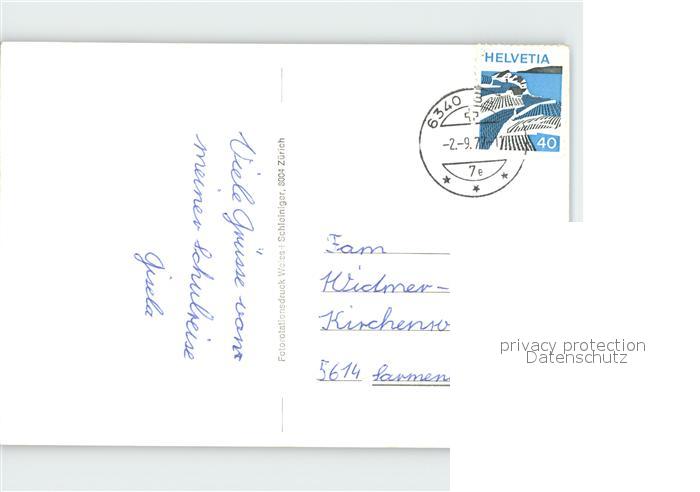 HELVETIA
40
6340
-2.-9.7
7e
Viele Grüsse von
meiner Schulreise
Gisela
Fotorotationsdruck Weiss + Schleiniger, 8004 Zürich
Fam
Widmer-
Kirchenw
5614 Sarmens
privacy protection
Datenschutz